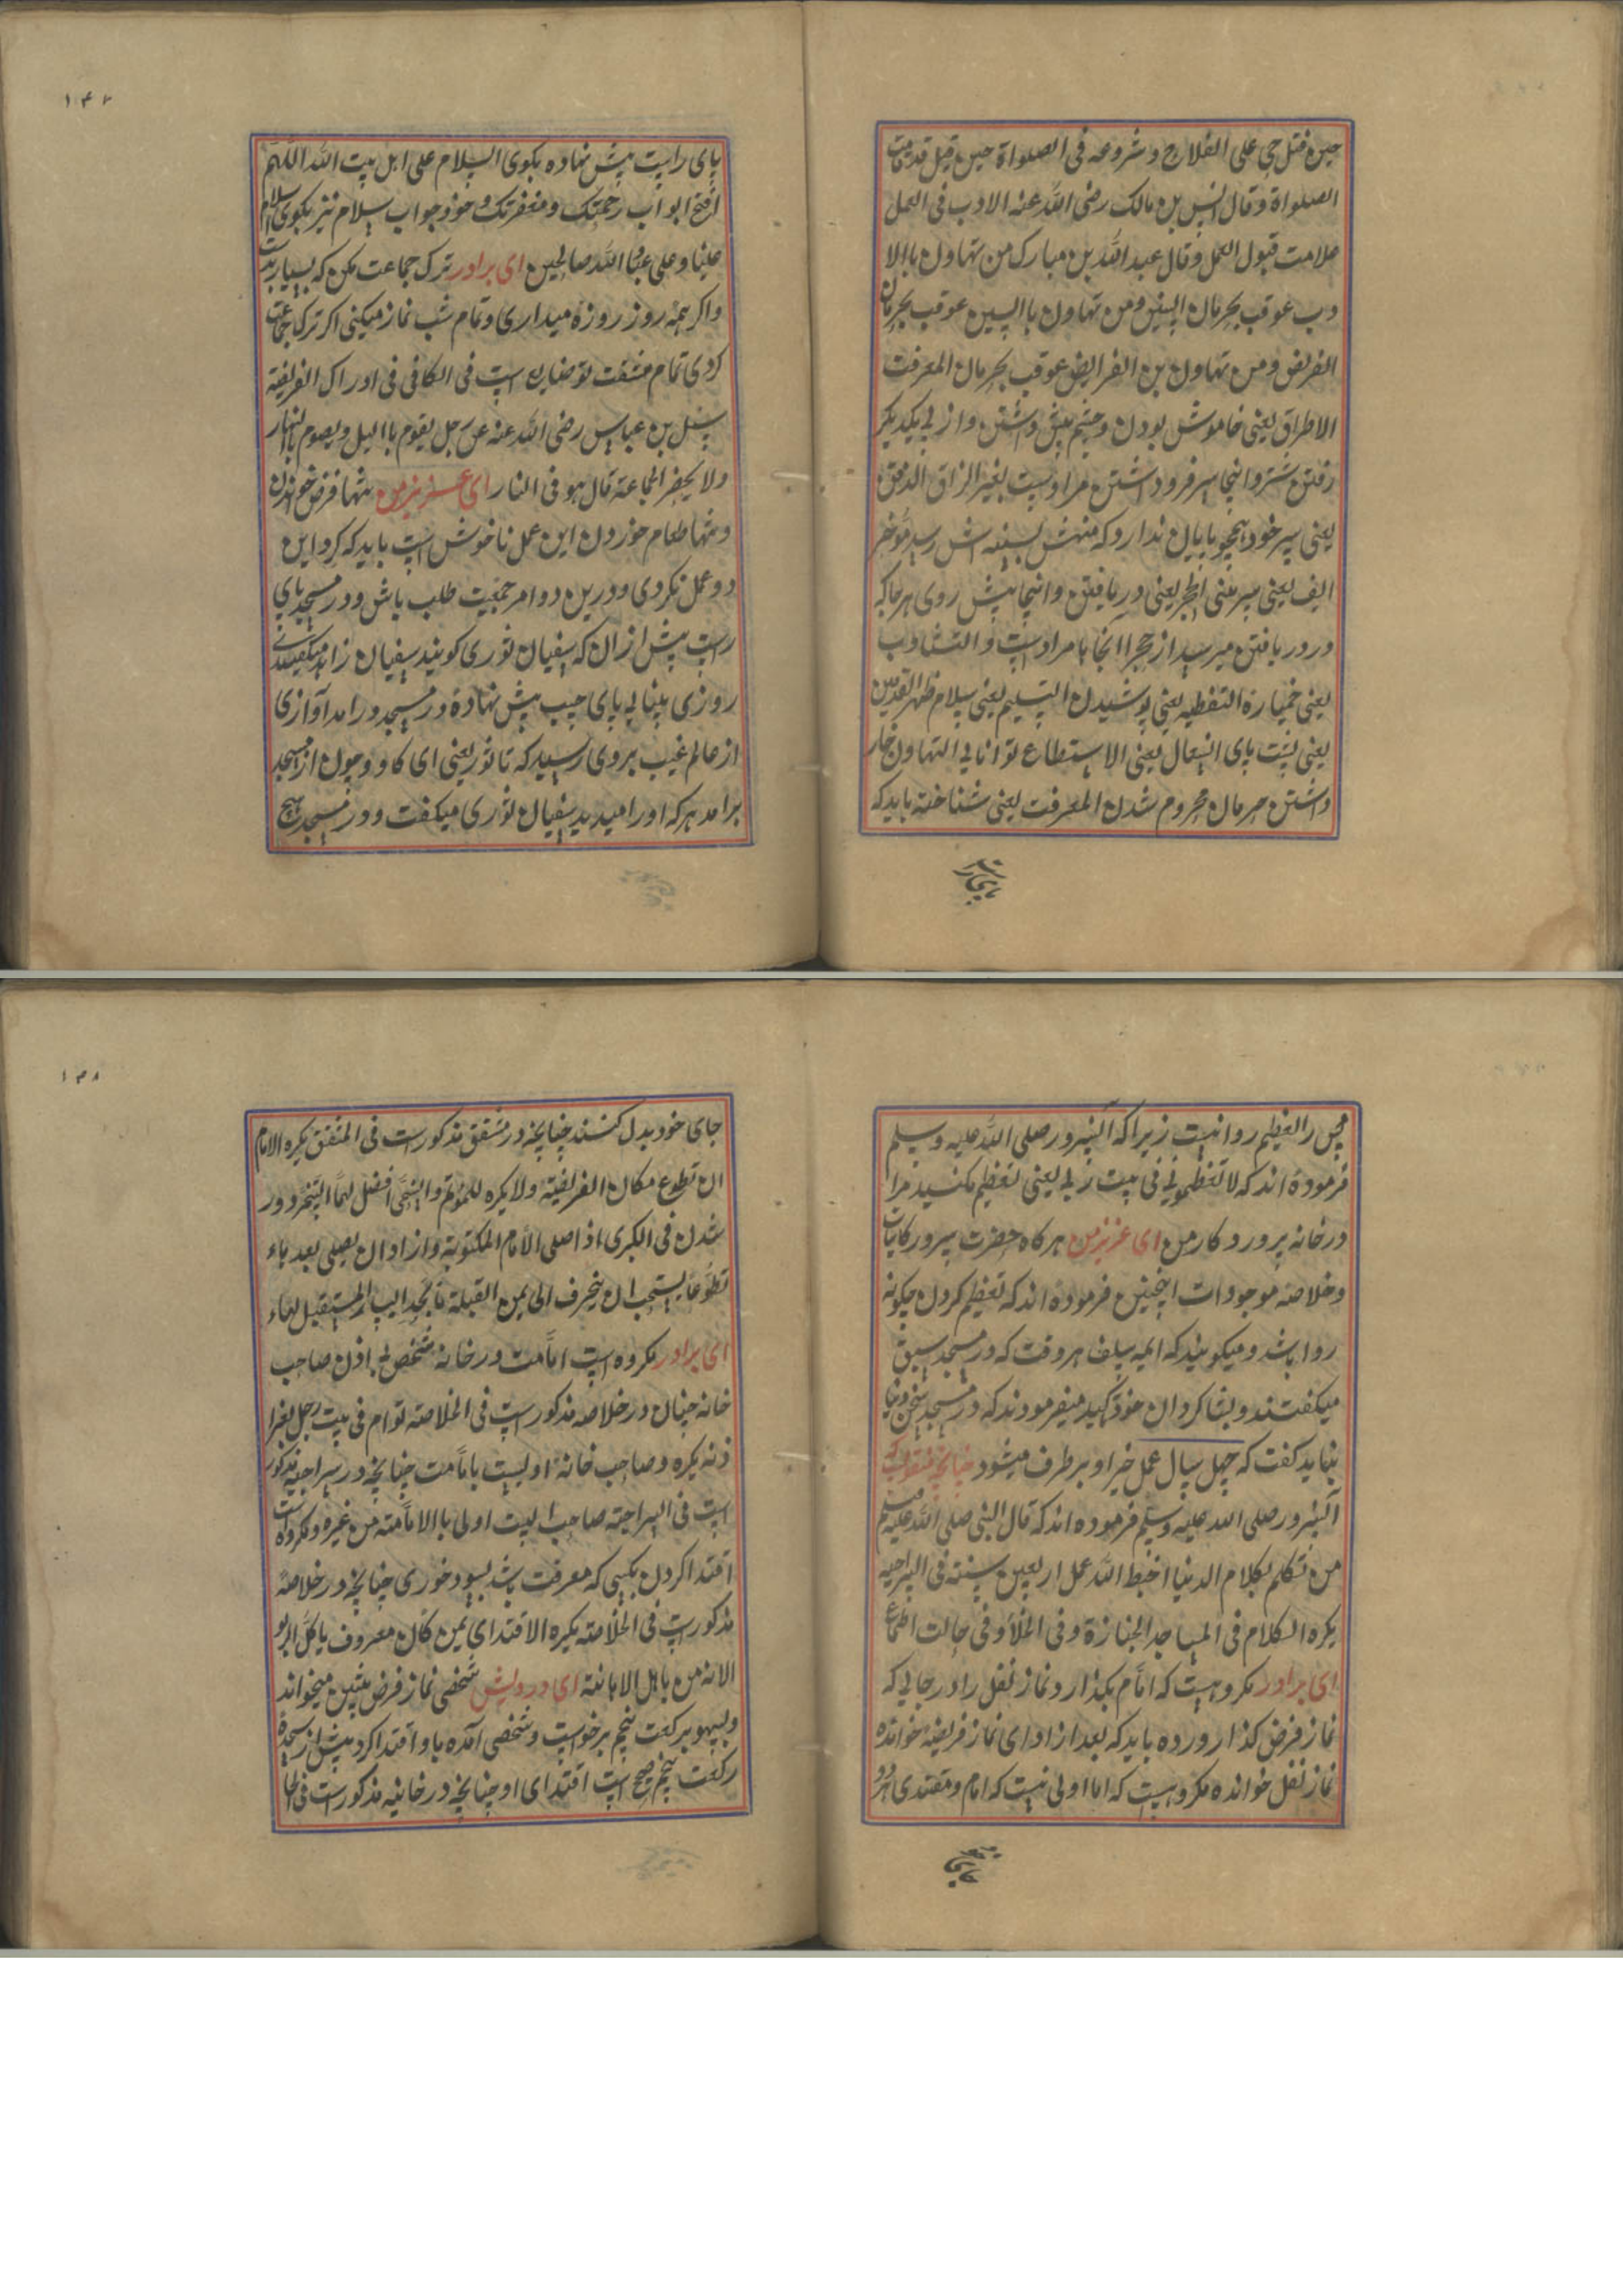 حین فتل حی علی الفلاح و شروعه فی الصلواة حین قیل قد قامت
الصلواة و قال انس بن مالک رضی الله عنه الادب فی العمل
علامت قبول العمل و قال عبد الله بن مبارک من تهاون باالا
دب عوقب بحرمان السنن و من تهاون باالسنن عوقب بحرمان
الفریض و من تهاون بن الفرایض عوقب بحرمان المعرفت
الاطراق یعنی خاموش بودن و چشم پیش داشتن و از پی یکدیگر
رفتن شتر و اینجا سر فرود داشتن مراد است بغیر الزاق الذقن
یعنی سر خود همچو بابیان ندارد که منهش بسینه اش رسد موخر
الیف یعنی سر بینی الحجر یعنی دریافتن و اینجا پیش روی هر جا که
در دریافتن میرسد از حجر اانجا با مراد است و التثناوب
یعنی خمیازه التغطیه یعنی پوشیدن التسلیم یعنی سلام ظهر القدمین
یعنی پشت پای انتعال یعنی الاستطاع توانایی التهاون خار
داشتن حرمان محروم شدن المعرفت یعنی شناخته باید که
پای راست پیش نهاده بکوی السلام علی اهل بیت الله اللهم
افتح ابواب رحمتک و مغفرتک و خود جواب سلام نیز بکوی السلام
علینا و علی عباد الله صالحین ای برادر ترک جماعت مکن که بسیار بدست
و اکر همه روز روزه میداری و تمام شب نماز میکنی اکر ترک جماعت
کردی تمام مشقت تو ضایع است فی الکافی فی ادراک الفریضة
سئل بن عباس رضی الله عنه عن رجل یقوم باالیل و یصوم باالنهار
ولا یحضر الجماعة قال هو فی النار ای عزیز من تنها فرض خواندن
و تنها طعام خوردن این عمل ناخوش است باید که کرد این
دو عمل نکردی و درین دو امر جمعیت طلب باش و در مسجد پای
راست پیش از ان که سفیان ثوری کویند سفیان زاهد میکفتند
روزی بپنالی پای چپ پیش نهاده در مسجد در امد آوازی
از عالم غیب بروی رسید که تا ثور یعنی ای کاو و چون از مسجد
برامد هر که او را میدید سفیان ثوری میکفت و در مسجد هیچ
۱۴۷
مجلس را تعظیم روا نیست زیرا که آنسرور صلی الله علیه وسلم
فرموده اند که لا تعظمونی فی بیت ربی یعنی تعظیم مکنید مرا
در خانه پروردکار من ای عزیز من هرکاه حضرت سرور کاینات
و خلاصه موجودات اینچنین فرموده اند که تعظیم کردن چکونه
روا باشد و میکویند که ایمه سلف هر وقت که در مسجد سبق
میکفتند و بشاکردان خود تاکید میفرمودند که در مسجد سخن دنیا
نباید کفت که چهل سال عمل خیر او برطرف میشود چنانچه منقولست که
آنسرور صلی الله علیه وسلم فرموده اند که قال النبی صلی الله علیه وسلم
من تکلم بکلام الدنیا احبط الله عمل اربعین سنته فی السراجیه
یکره الکلام فی المساجد الجنازة و فی الخلاء و فی حالت الجماع
ای برادر مکروهیست که امام بکذارد نماز نفل را در جایی که
نماز فرض کذارورده باید که بعد از ادای نماز فریضه خوانده
نماز نفل خوانده مکروهیست که اما اولی نیست که امام و مقتدی هردو
جای خود بدل کنند چنانچه در متفق مذکور است فی المتفق یکره الامام
ان تطوع مکان الفریضته ولا یکره للموتم والتنحی افضل لهما التنحی دور
شدن فی الکبری اذا صلی الامام المکتوبة و ازاد ان یصلی بعد هاء
تطوعا یستحب ان ینحرف الی یمین القبلة
ای برادر مکروه است امامت در خانه شخص بی اذن صاحب
خانه چنان در خلاصه مذکور است فی الخلاصته توام فی بیت رجل بغیرا
ذنه یکره و صاحب خانه اولیست بامامت چنانچه در سراجیه مذکور
است فی السراجته صاحب البیت اولی باالامامته من غیره و مکروه است
اقتدا کردن بکسی که معرفت باشد بسود خوری چنانچه در خلاصه
مذکور است فی الخلاصته یکره الاقتدای بمن کان معروف یاکل الربو
الانه من باهل الاهانته ای درویش شخصی نماز فرض پیشین میخواند
و بسهو برکعت پنجم برخواست و شخصی آمده باو اقتدا کرد پیش از سجده
رکعت پنجم صحیح است اقتدای او چنانچه در خانیه مذکور است
۱۴۸